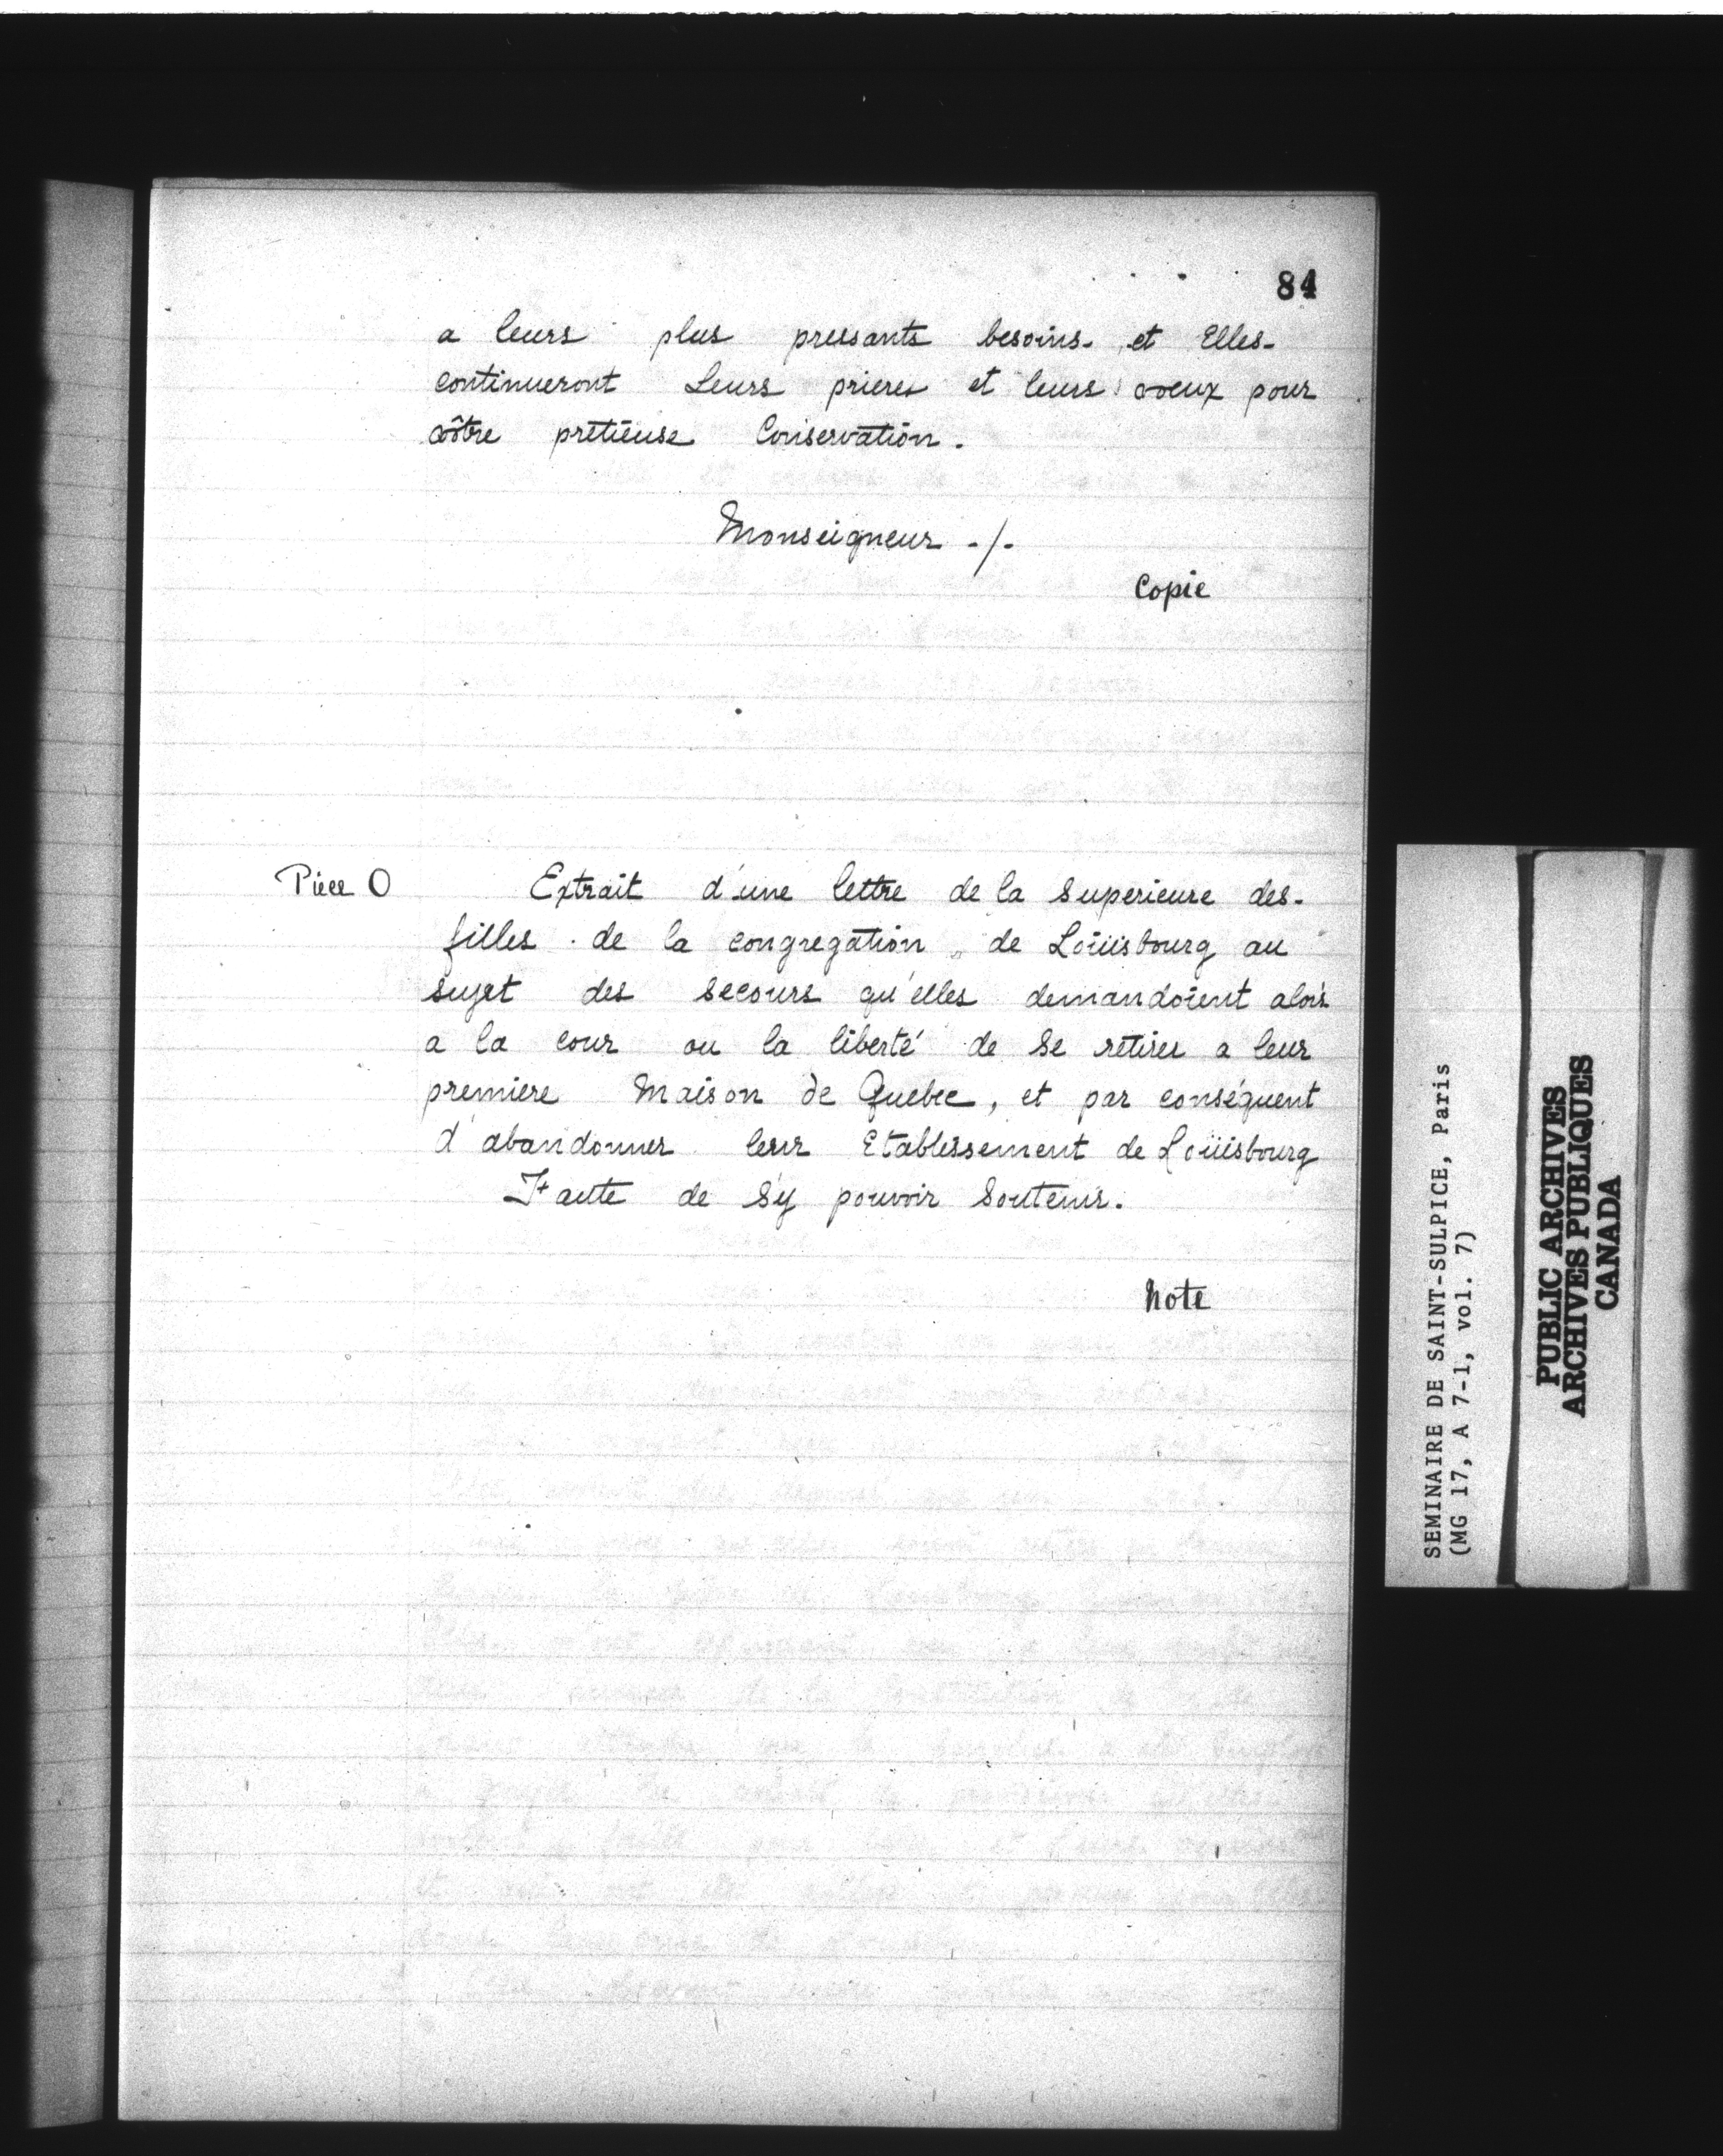 84
a leurs plus pressants besoins. et Elles-
continueront Leurs prieres et leurs voeux pour
vôtre prétieuse Conservation.
Monseigneur ./.
Copie
Piece O
Extrait d'une lettre de la Superieure des-
filles de la congregation de Loüisbourg au
sujet des secours qu'elles demandoient alois
a la cour ou la liberté de se retirer a leur
premiere Maison de Quebec, et par conséquent
d'abandonner leur Etablissement de Loüisbourg
Faute de s'y pouvoir Soutenir.
Note
SEMINAIRE DE SAINT-SULPICE, Paris
(MG 17, A 7-1, vol. 7)
PUBLIC ARCHIVES
ARCHIVES PUBLIQUES
CANADA